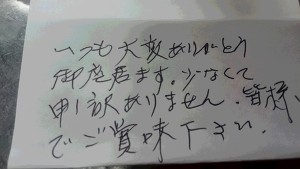 いつも大変ありがとう
御座居ます。少なくて
申し訳ありません。皆様、
でご賞味下さい。